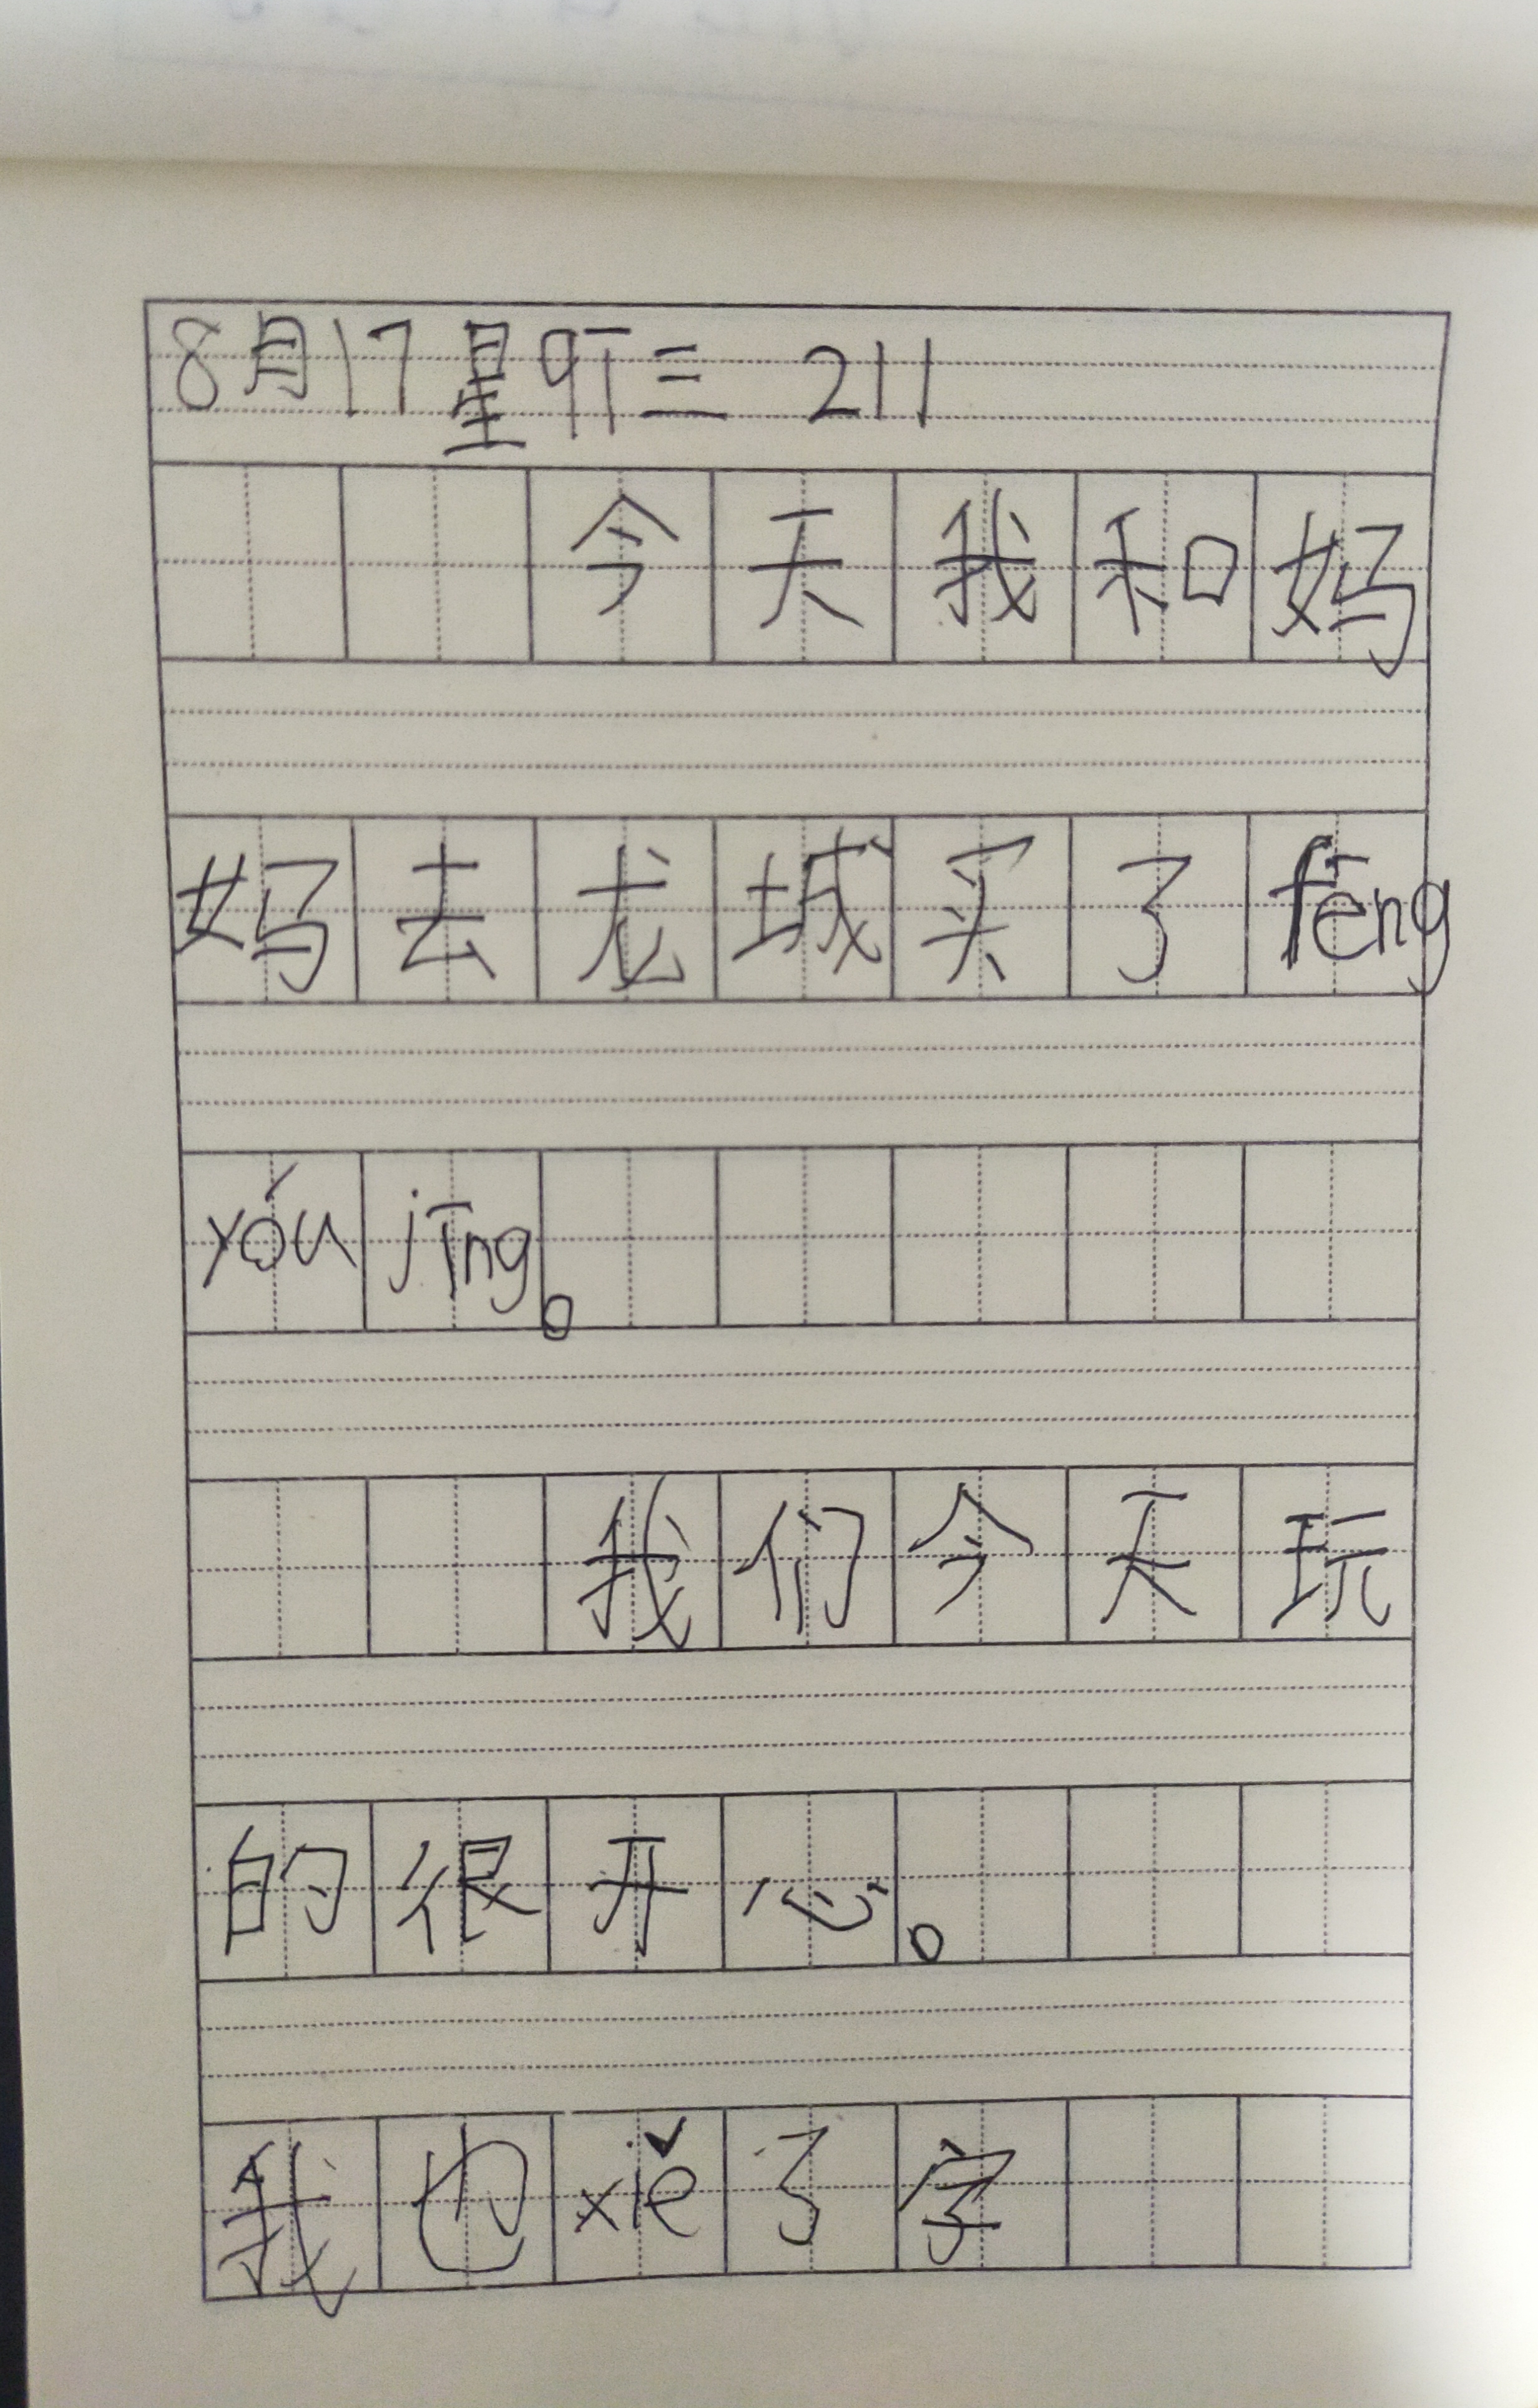 8月17星期三 211
今天我和妈
妈去龙城买了fēng
yóu jīng。
我们今天玩
的很开心。
我也xiě了字